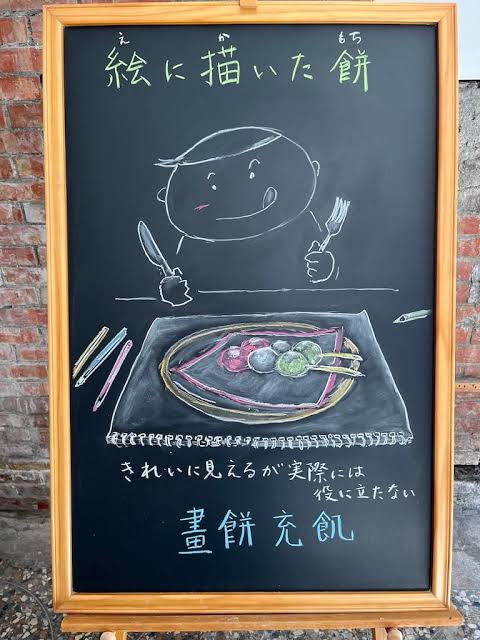 え か もち
絵に描いた餅
きれいに見えるが実際には
役に立たない
畫餅充飢